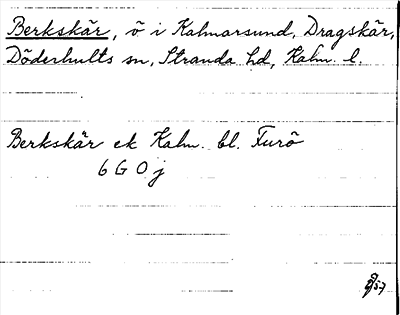 Berkskär, ö i Kalmarsund, Dragskär,
Döderhults sn, Stranda hd, Kalm. l.
Berkskär ek Kalm. bl. Furö
6 G 0 j